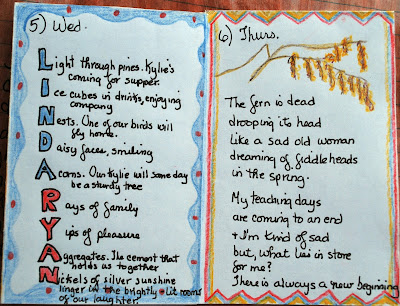 5) Wed.
Light through pines. Kylie's
coming for supper.
Ice cubes in drinks, enjoying
company
Nests. One of our birds will
fly home.
Daisy faces, smiling
Acorns. Our Kylie will some day
be a sturdy tree
Rays of family
Yips of pleasure
Aggregates. The cement that
holds us together
Nickels of silver sunshine
linger on the brightly-lit rooms
of "our laughter."
6) Thurs.
The fern is dead
drooping its head
Like a sad old woman
dreaming of fiddleheads
in the spring.
My teaching days
are coming to an end
+ I'm kind of sad
but, what lies in store
for me?
There is always a new beginning